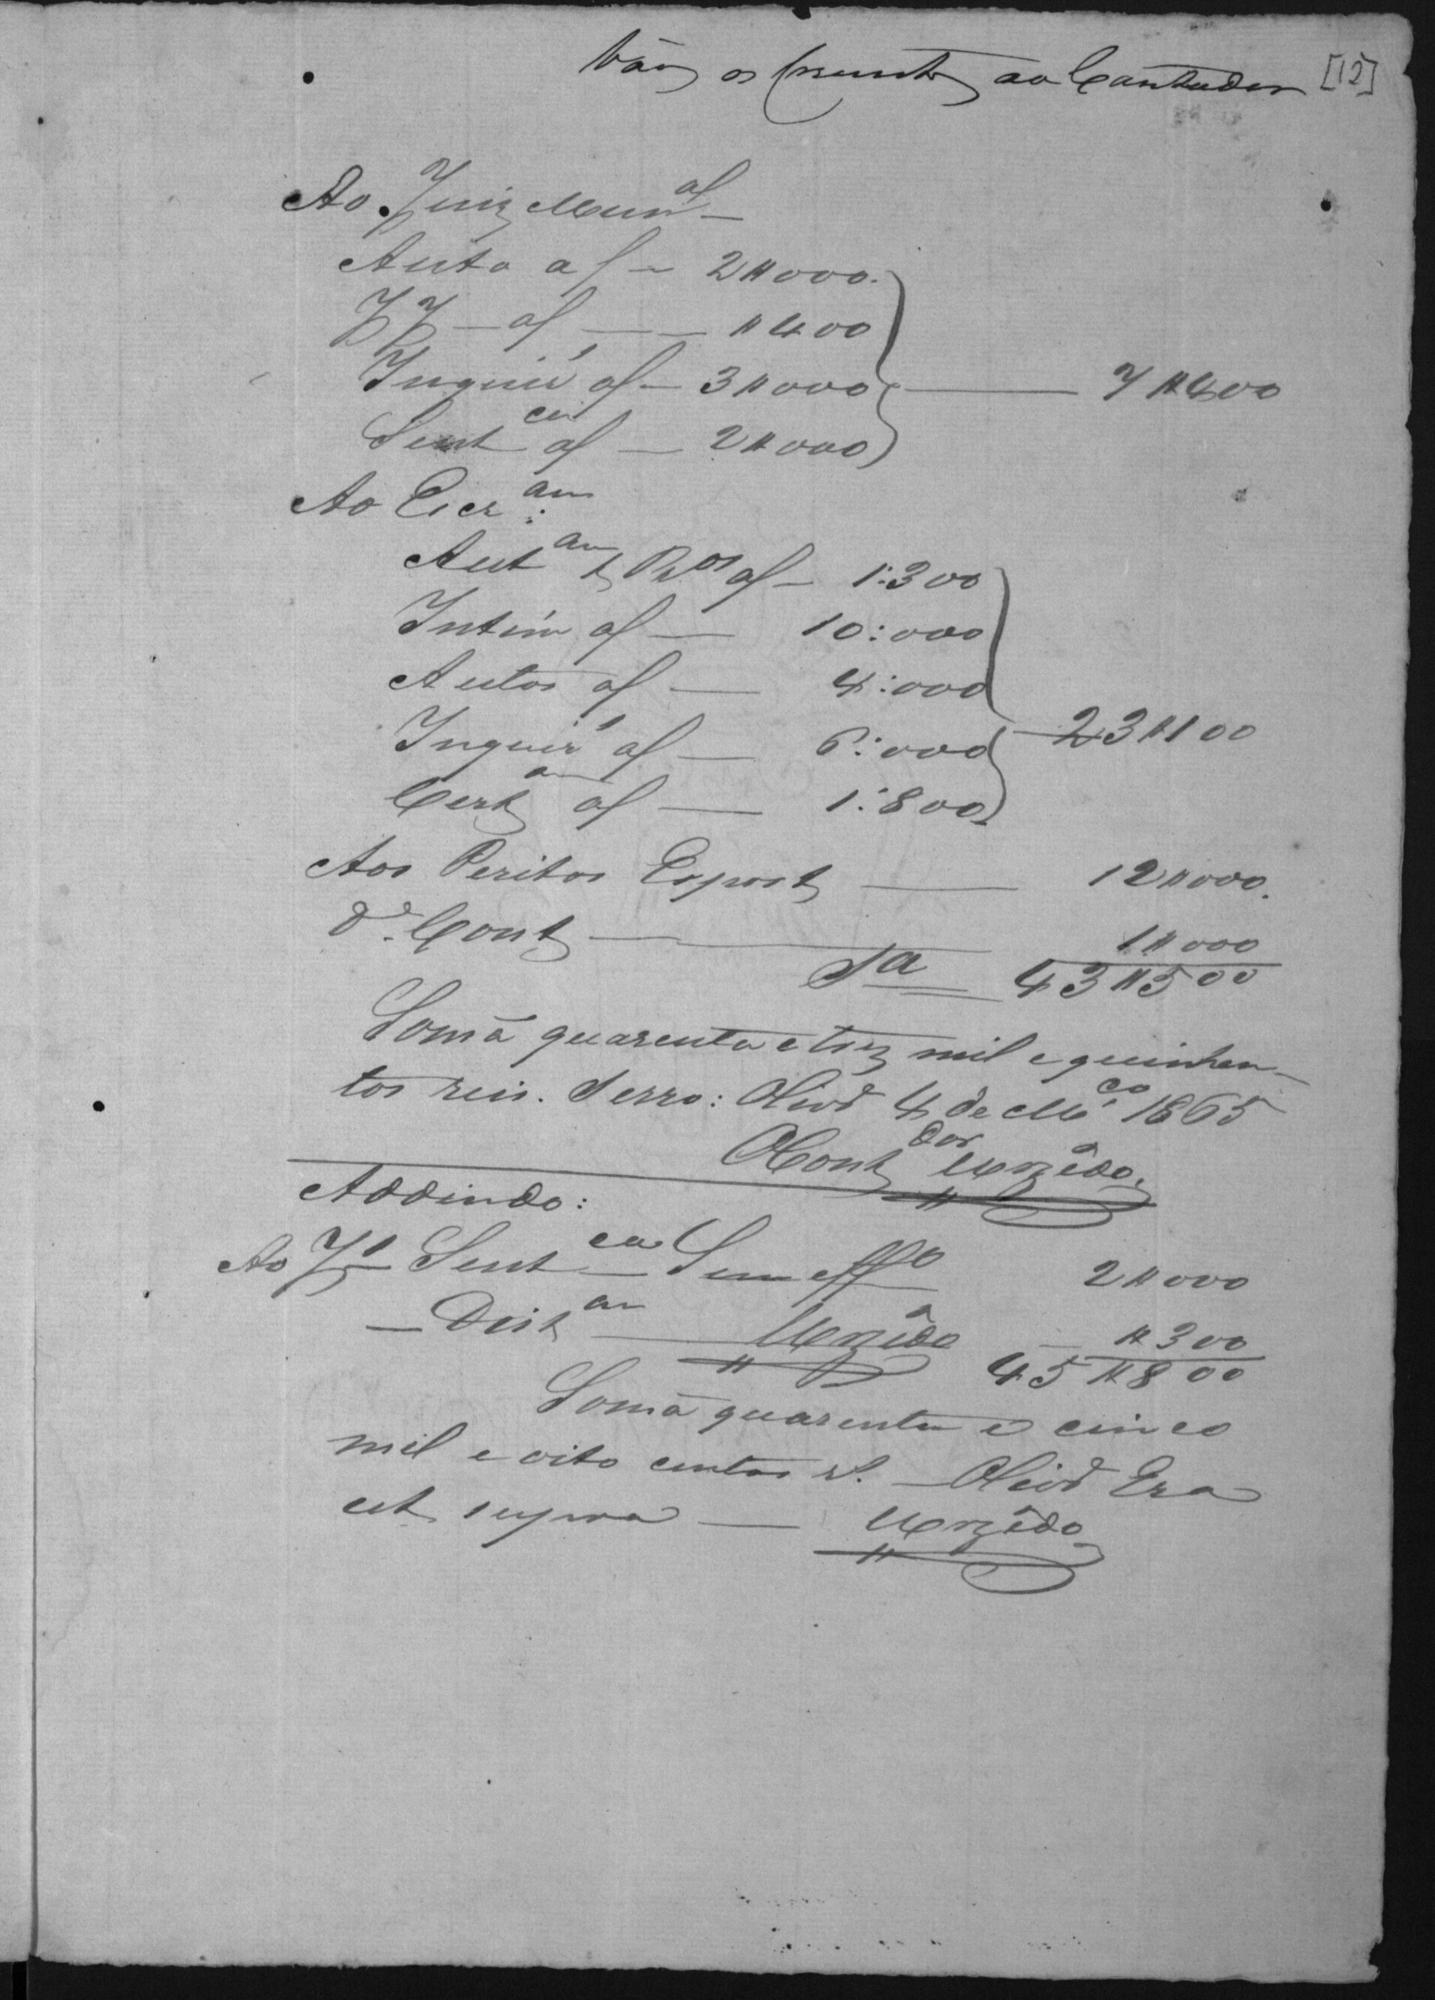 Vão os presentes ao Contador [12]
Ao Juiz Mun.al
Auto af — 2#000
JJ — af — #400
Inquir' af — 3#000 — 7#400
Sent.ca af — 2#000
Ao Escr.am
Aut.am e Rzos af — 1:300
Intim af — 10:000
Autos af — 4:000
23#100
Inquir' af — 6:000
Cert.am af — 1:800
Aos Peritos — 12#000.
Da Conta — 1#000
Sa 43#500
Somã quarenta e tres mil e quinhen-
tos reis. Serro: Olivd 4 de Mço 1865
O Contdor Urzêdo
Addindo:
Ao J' Sent.ca 2#000
— Dist.am — Urzêdo — #300
45#800
Somã quarenta e cinco
mil e oito centos rs. — Olivd Era
ut supra — Urzêdo